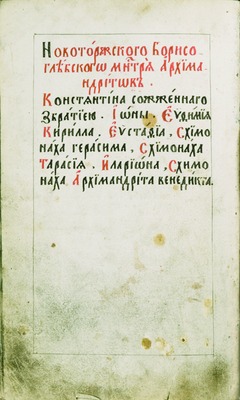 Новото́ржского Борисо-
глѣбскогѡ мнⷭ҇трѧ̀ А҆рхїма-
ндрі́тѡвъ .
Константі́на сожже́ннаго
збра́тїею . І҆ѡ́ны . Е҆ѵѳи́мїѧ
Кири́лла . Е҆ѵста́ѳїа , Схїмо
на́ха гера́сима . Схїмона́ха
Тара́сїѧ . И҆ларїѡ́на , Схимо
на́ха А҆рхїмандрі́та венеди́кта .